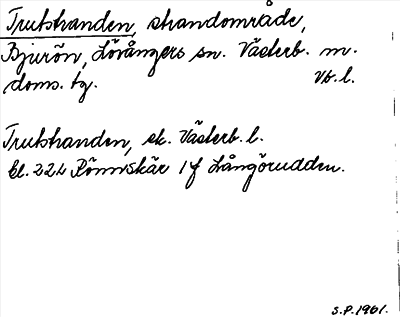 Trutstranden, strandområde,
Bjurön, Lövångers sn. Västerb. m.
doms. tg. Vb. l.
Trutstranden, ek. Västerb. l.
bl. 222 Rönnskär 1 f Långörudden.
S.P. 1961.